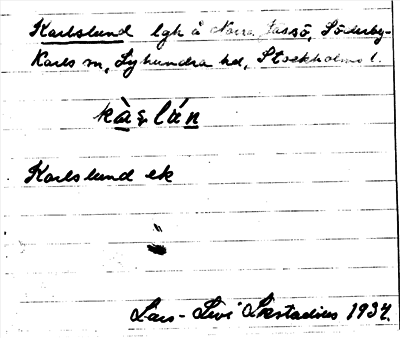 Karlslund lgh å Norra Jässö, Söderby-
Karls sn, Lyhundra hd, Stockholms l.
Karlslund ek
Lars-Levi Læstadius 1934.